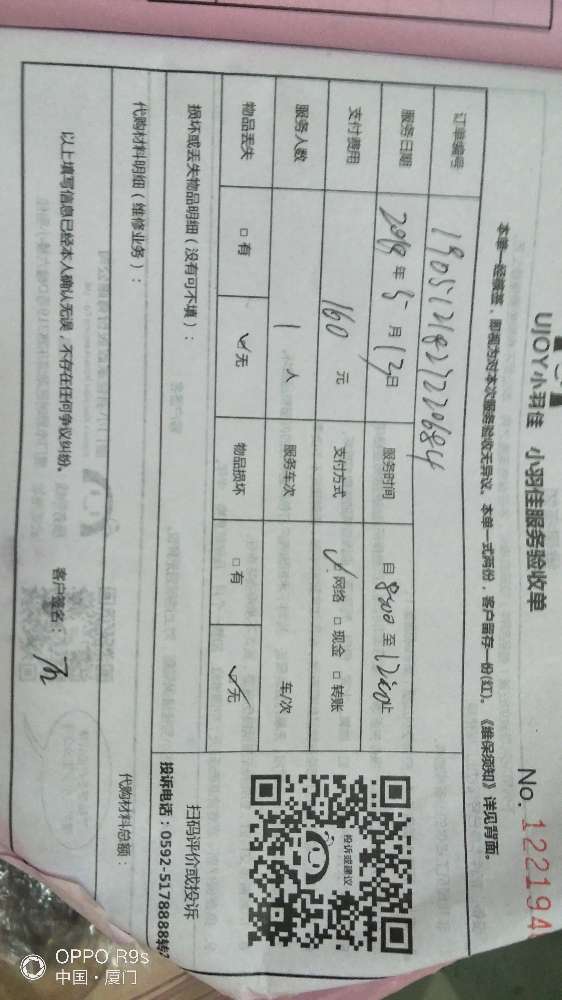 UJOY小羽佳 小羽佳服务验收单
No. 122194
本单一经签签，即视为对本次服务验收无异议。本单一式两份，客户留存一份(红)。《维保须知》详见背面。
订单编号 1905121827220684
服务日期 2019年5月12日 服务时间 自8:00至12:00止
支付费用 160元 支付方式 ☑网络 □现金 □转账
服务人数 1人 服务车次 车/次
物品丢失 □有 ☑无 物品损坏 □有 ☑无
损坏或丢失物品明细（没有可不填）：
投诉或建议
扫码评价或投诉
投诉电话：0592-5178888转
代购材料明细（维修业务）：
代购材料总额：
以上填写信息已经本人确认无误，不存在任何争议纠纷。
客户签名：
OPPO R9s
中国·厦门